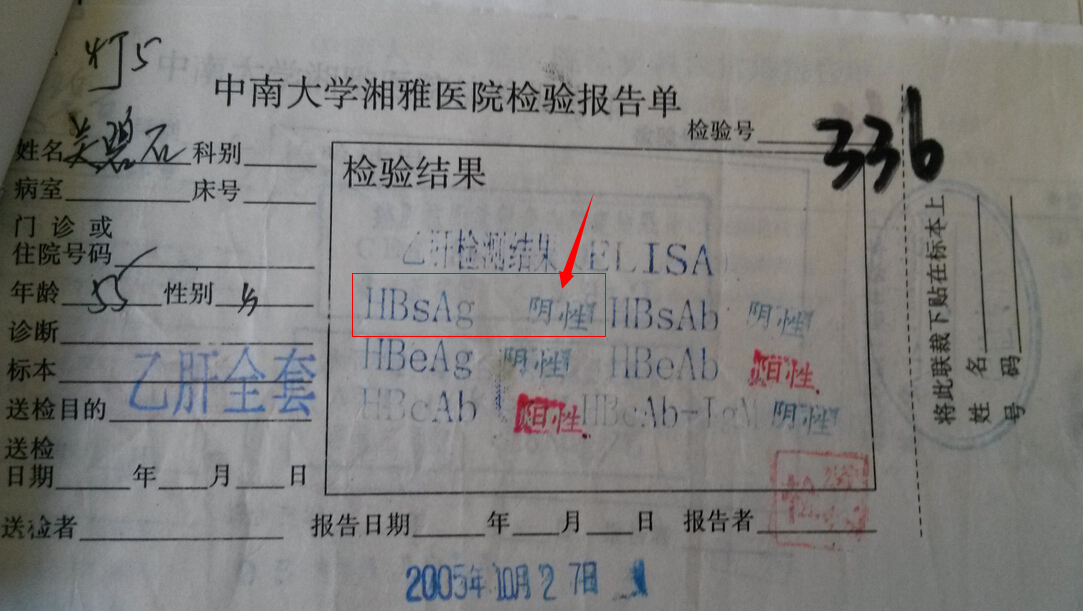 灯5
中南大学湘雅医院检验报告单
检验号 336
姓名 碧石 科别
病室 床号
门诊或
住院号码
年龄 55 性别
诊断
标本
送检目的
乙肝全套
送检
日期 年 月 日
送检者
检验结果
乙肝检测结果 ELISA
HBsAg 阴性 HBsAb 阴性
HBeAg 阴性 HBeAb 阳性
HBcAb 阳性 HBcAb-IgM 阴性
报告日期 年 月 日 报告者
2005年10月27日
将此联裁下贴在标本上
姓名
号码